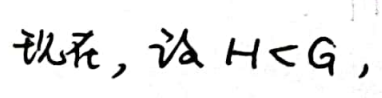 现在，设 H<G，